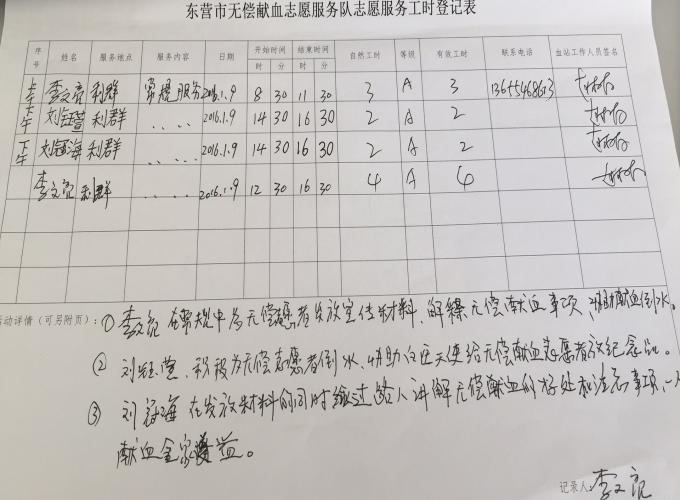 东营市无偿献血志愿服务队志愿服务工时登记表
序号 姓名 服务地点 服务内容 日期 开始时间 结束时间 自然工时 等级 有效工时 联系电话 血站工作人员签名
时 分 时 分
上午 李文亮 利群 常规服务 2016.1.9 8 30 11 30 3 A 3
下午 刘钰萱 利群 .... 2016.1.9 14 30 16 30 2 A 2
下午 刘 海 利群 .... 2016.1.9 14 30 16 30 2 A 2
李文亮 利群 .... 2016.1.9 12 30 16 30 4 A 4
活动详情(可另附页):① 李文亮 在常规中为无偿志愿者发放宣传材料、解释无偿献血事项、协助献血倒水。
② 刘钰萱、积极为无偿志愿者倒水、协助白衣天使给无偿献血志愿者发纪念品。
③ 刘 海 在发放材料的同时给过路人讲解无偿献血的好处和注意事项,一人
献血全家受益。
记录人:李文亮